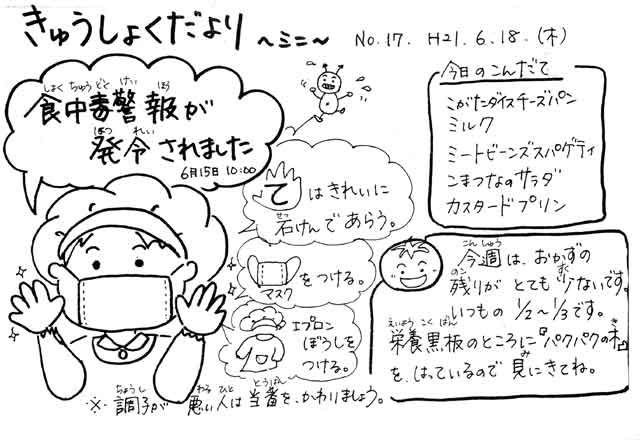 きゅうしょくだより ～ミニ～ No.17. H21.6.18.(木)
食中毒警報が
しょく ちゅう どく けい ほう
発令されました
はつ れい
6月15日 10:00
今日のこんだて
こがたダイスチーズパン
ミルク
ミートビーンズスパゲティ
こまつなのサラダ
カスタードプリン
て はきれいに
石けんであらう。
せっ
マスク をつける。
エプロン
ぼうしを
つける。
今週は、おかずの
こんしゅう
残りが とても 少ないです。
のこ すく
いつもの 1/2～1/3です。
栄養黒板のところに『パクパクの木』
えいよう こく ばん き
を、はっているので 見にきてね。
み
※ 調子が 悪い人は 当番を、かわりましょう。
ちょうし わる ひと とうばん